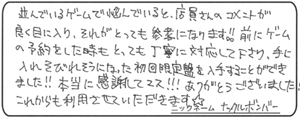 並んでいるゲームで悩んでいると、店員さんのコメントが
良く目に入り、それがとっても参考になります!!前にゲーム
の予約をした時も、とっても丁寧に対応して下さり、手に
入れそびれそうになった初回限定盤を入手することができ
ました!!本当に感謝してマス!!!ありがとうございました!
これからも利用させていただきます☆
ニックネーム ナックルボンバー